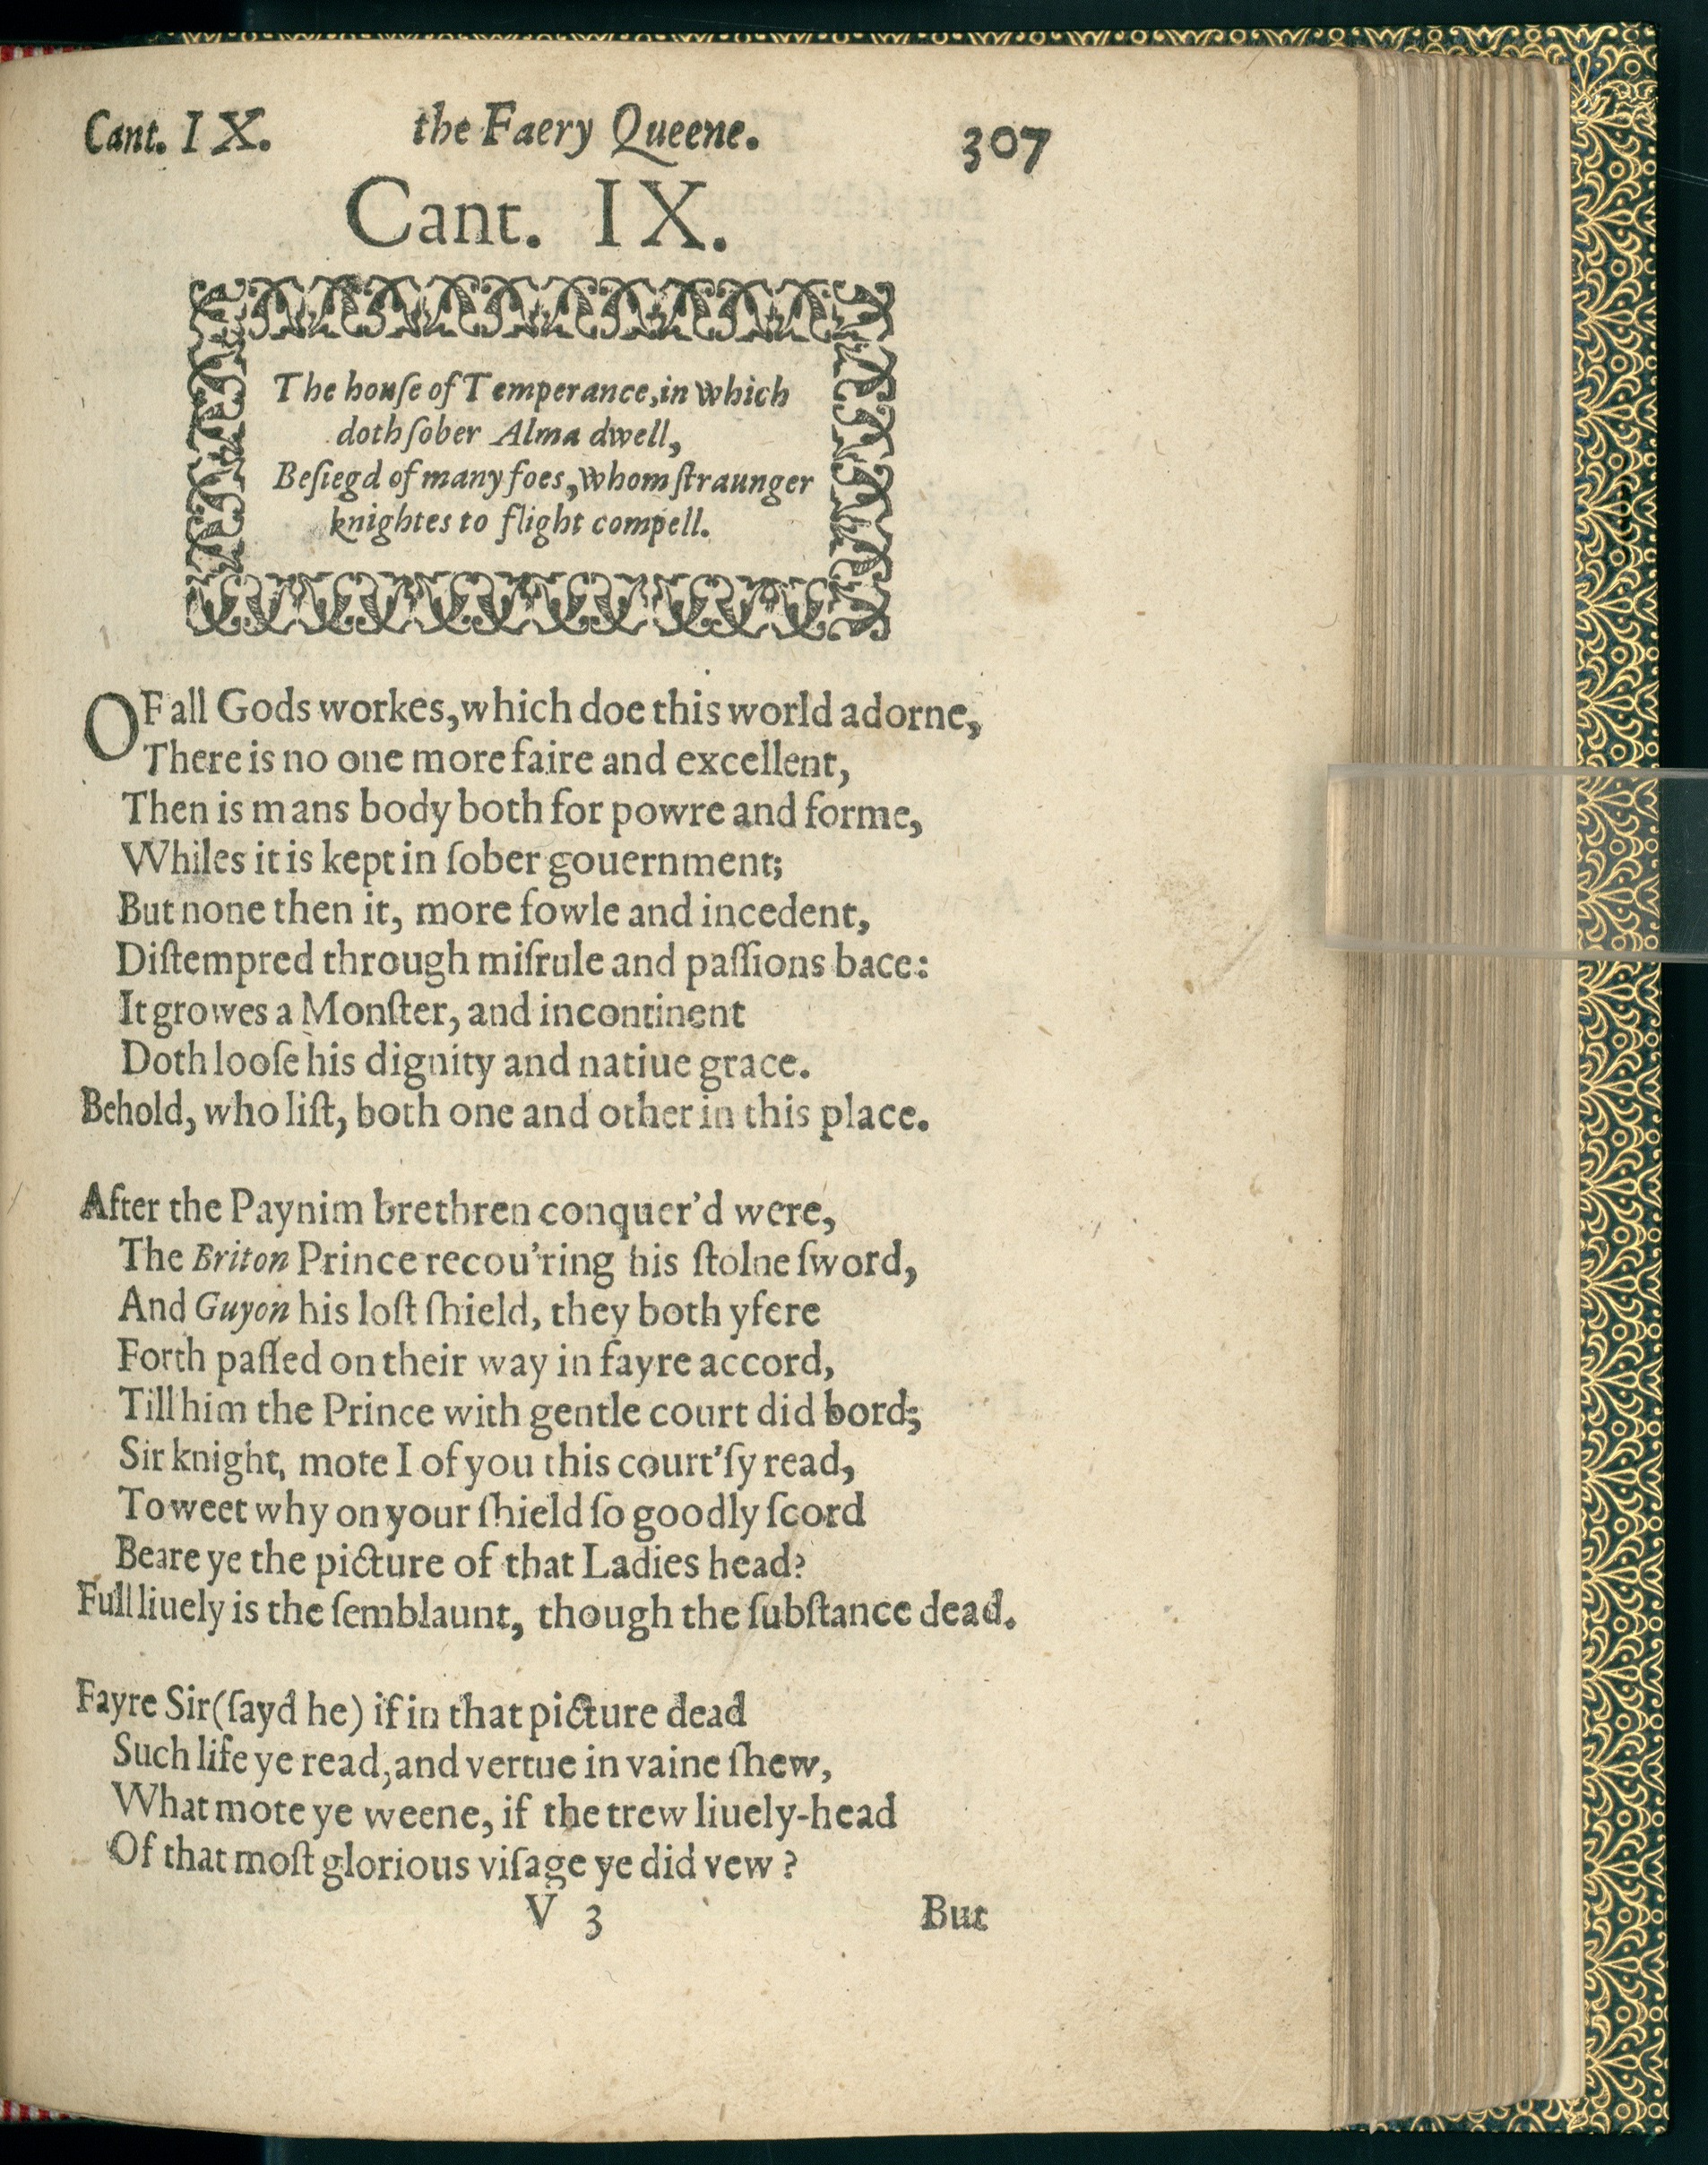 Cant. IX. the Faery Queene. 307
Cant. IX.
The houſe of Temperance, in which
doth ſober Alma dwell,
Beſiegd of many foes, whom ſtraunger
knightes to flight compell.
OF all Gods workes, which doe this world adorne,
There is no one more faire and excellent,
Then is mans body both for powre and forme,
Whiles it is kept in ſober gouernment;
But none then it, more fowle and incedent,
Diſtempred through miſrule and paſſions bace:
It growes a Monſter, and incontinent
Doth looſe his dignity and natiue grace.
Behold, who liſt, both one and other in this place.
After the Paynim brethren conquer'd were,
The Briton Prince recou'ring his ſtolne ſword,
And Guyon his loſt ſhield, they both yfere
Forth paſſed on their way in fayre accord,
Till him the Prince with gentle court did bord;
Sir knight, mote I of you this court'ſy read,
To weet why on your ſhield ſo goodly ſcord
Beare ye the picture of that Ladies head?
Full liuely is the ſemblaunt, though the ſubſtance dead.
Fayre Sir (ſayd he) if in that picture dead
Such life ye read, and vertue in vaine ſhew,
What mote ye weene, if the trew liuely-head
Of that moſt glorious viſage ye did vew?
V 3 But